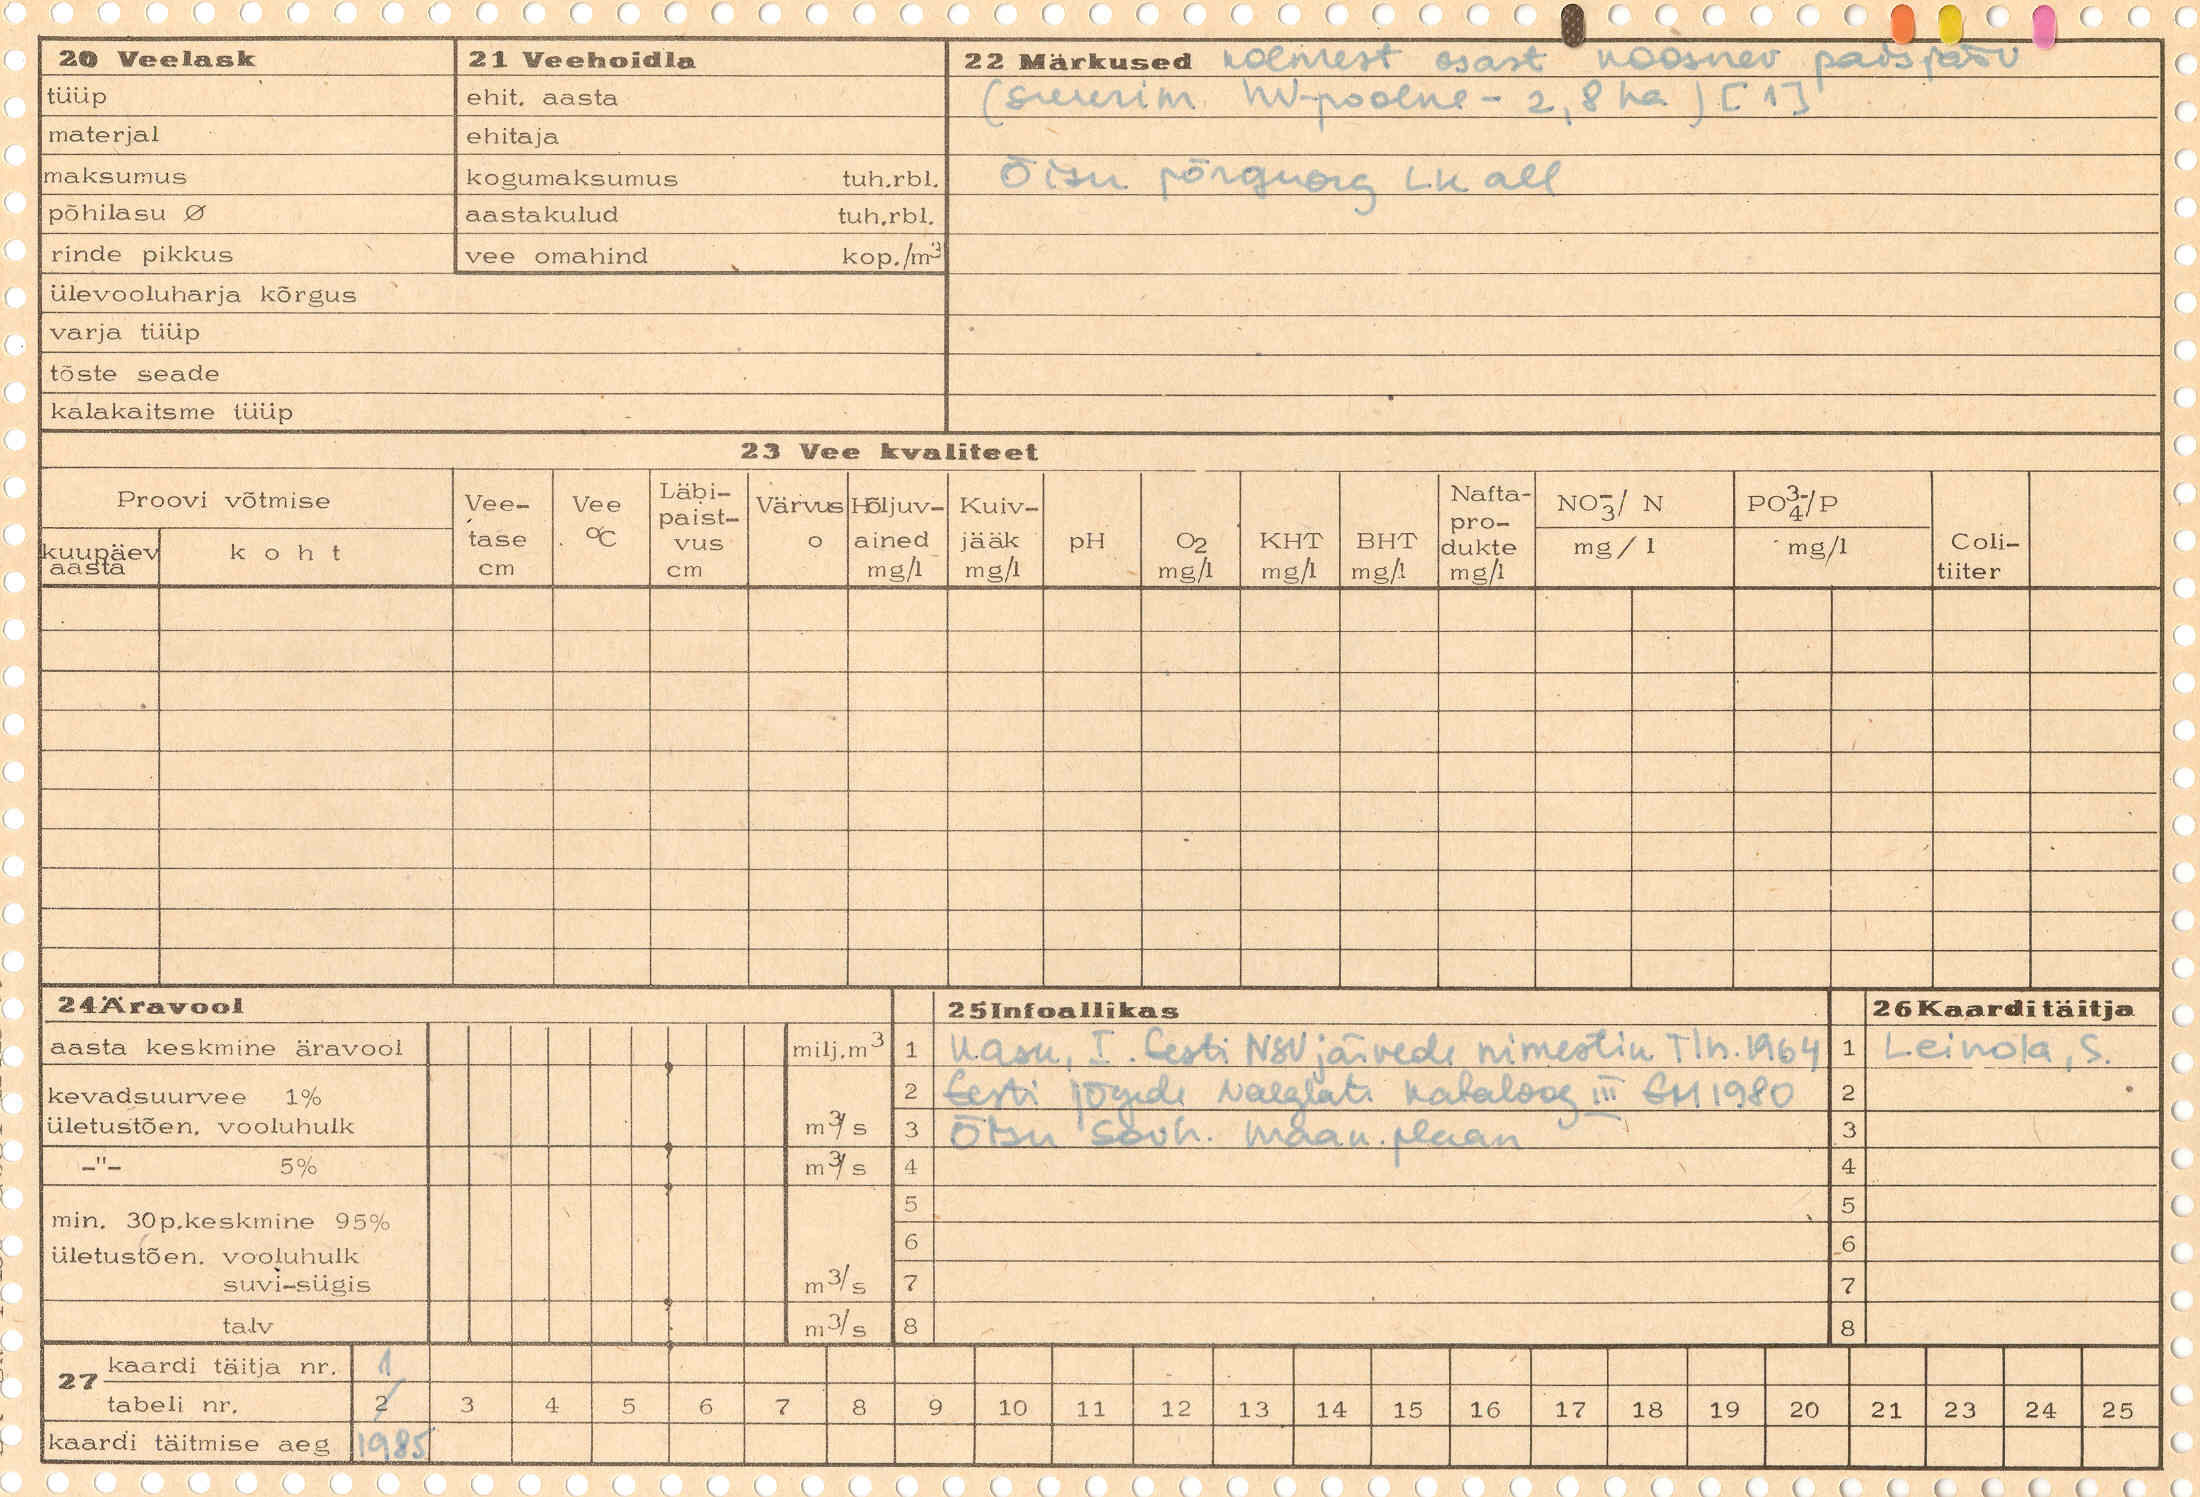 20 Veelask
tüüp
materjal
maksumus
põhilasu Ø
rinde pikkus
ülevooluharja kõrgus
varja tüüp
tõste seade
kalakaitsme tüüp
21 Veehoidla
ehit. aasta
ehitaja
kogumaksumus tuh.rbl.
aastakulud tuh.rbl.
vee omahind kop./m³
22 Märkused kolmest osast koosnev paisjärv
(suurim NW-poolne - 2,8 ha) [1]
Õisu põrguorg LK all
23 Vee kvaliteet
Proovi võtmise
kuupäev
aasta
koht
Vee-
tase
cm
Vee
°C
Läbi-
paist-
vus
cm
Värvus
o
Hõljuv-
ained
mg/l
Kuiv-
jääk
mg/l
pH
O2
mg/l
KHT
mg/l
BHT
mg/l
Nafta-
pro-
dukte
mg/l
NO₃⁻/ N
mg/l
PO₄³⁻/P
mg/l
Coli-
tiiter
24 Äravool
aasta keskmine äravool milj.m³
kevadsuurvee 1%
ületustõen. vooluhulk m³/s
-"- 5% m³/s
min. 30p.keskmine 95%
ületustõen. vooluhulk
suvi-sügis m³/s
talv m³/s
25 Infoallikas
1 Kask, I. Eesti NSV järvede nimestik Tln. 1964
2 Eesti jõgede valglate kataloog III EM 1980
3 Õisu sovh. maak. plaan
4
5
6
7
8
26 Kaardi täitja
1 Leinola, S.
2
3
4
5
6
7
8
27 kaardi täitja nr. 1
tabeli nr. 2 3 4 5 6 7 8 9 10 11 12 13 14 15 16 17 18 19 20 21 23 24 25
kaardi täitmise aeg 1985